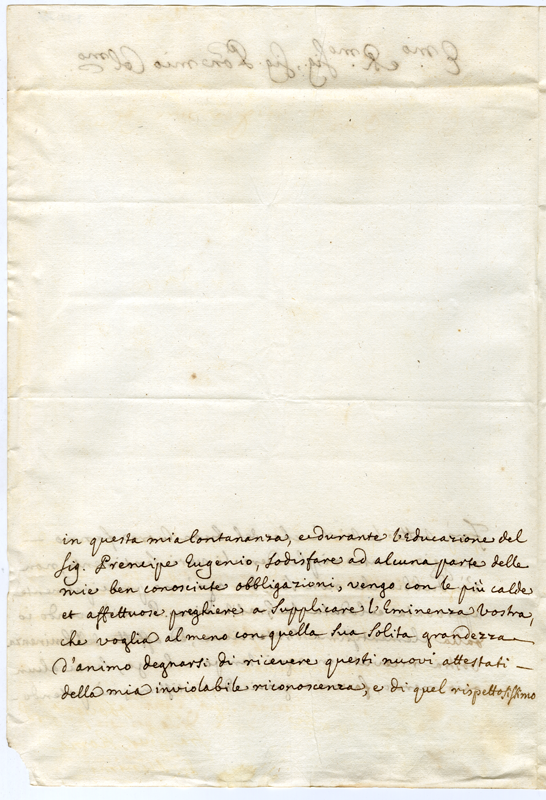 in questa mia lontananza, e durante l'educazione del
Sig. Prencipe Eugenio, sodisfare ad alcuna parte delle
mie ben conosciute obbligazioni, vengo con le più calde
et affettuose preghiere a supplicare l'Eminenza Vostra,
che voglia almeno con quella sua solita grandezza
d'animo degnarsi di ricevere questi nuovi attestati
della mia inviolabile riconoscenza, e di quel rispettosissimo